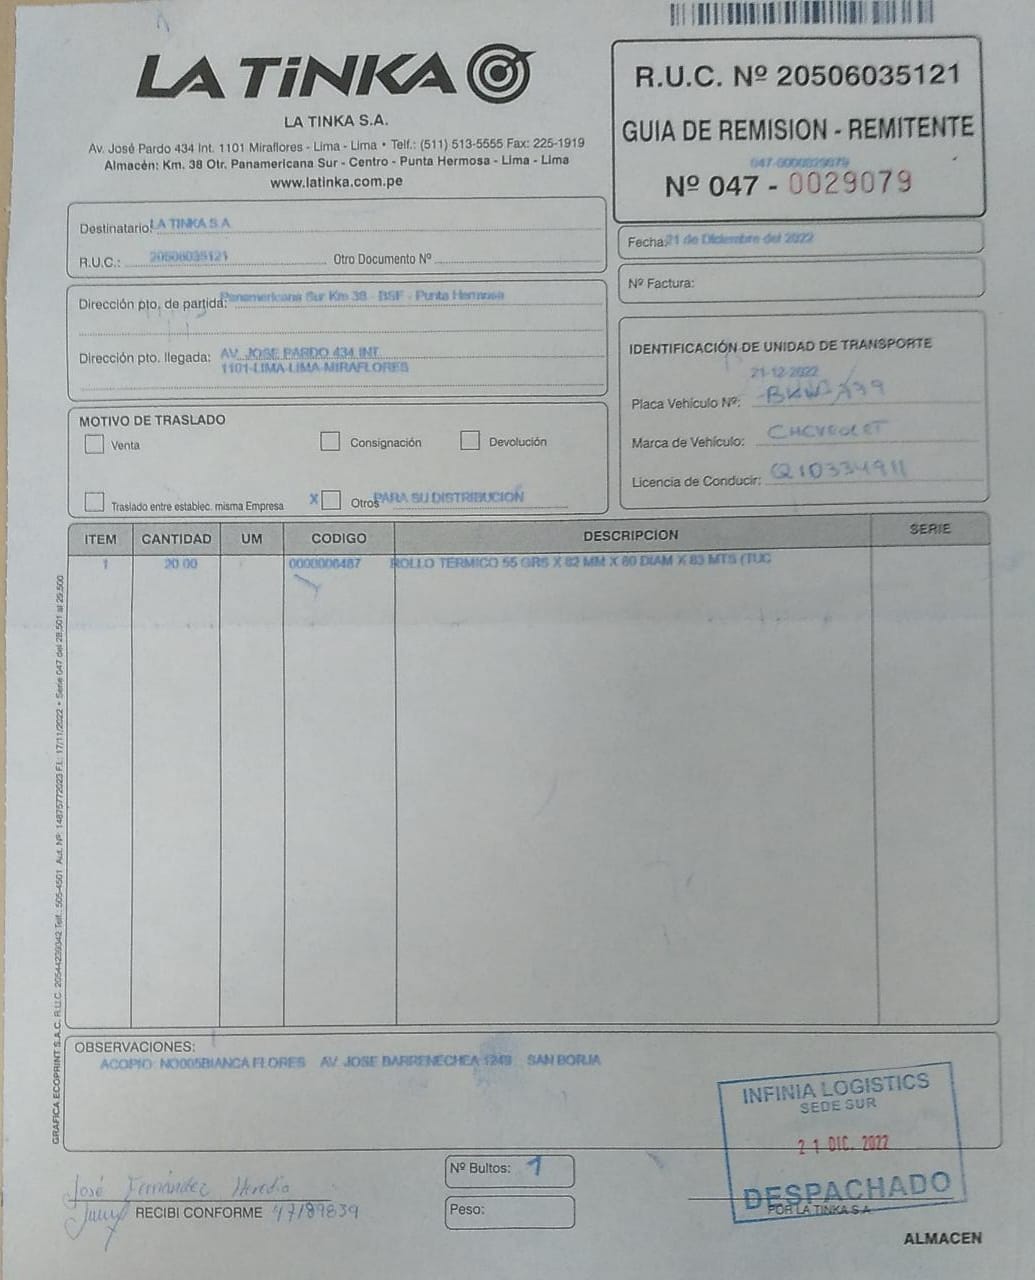 LA TiNKA
LA TINKA S.A.
Av. José Pardo 434 Int. 1101 Miraflores - Lima - Lima • Telf.: (511) 513-5555 Fax: 225-1919
Almacén: Km. 38 Otr. Panamericana Sur - Centro - Punta Hermosa - Lima - Lima
www.latinka.com.pe
R.U.C. Nº 20506035121
GUIA DE REMISION - REMITENTE
047-0000029079
Nº 047 - 0029079
Destinatario: LA TINKA S.A.
R.U.C.: 20506035121 Otro Documento Nº
Fecha: 21 de Diciembre del 2022
Nº Factura:
Dirección pto. de partida: Panamericana Sur Km 38 - BSF - Punta Hermosa
Dirección pto. llegada: AV. JOSE PARDO 434 INT.
1101-LIMA-LIMA-MIRAFLORES
IDENTIFICACIÓN DE UNIDAD DE TRANSPORTE
21-12-2022
Placa Vehículo Nº:
Marca de Vehículo: CHEVROLET
Licencia de Conducir: Q10334911
MOTIVO DE TRASLADO
Venta Consignación Devolución
Traslado entre establec. misma Empresa X Otros PARA SU DISTRIBUCION
ITEM CANTIDAD UM CODIGO DESCRIPCION SERIE
1 20.00 0000006487 ROLLO TERMICO 55 GRS X 82 MM X 80 DIAM X 83 MTS (TUC
GRAFICA ECOPRINT S.A.C. R.U.C. 20544239342 Telf.: 505-4501 Aut. Nº: 14875772023 F.I.: 17/11/2022 • Serie 047 del 28,501 al 29,500
OBSERVACIONES:
ACOPIO: NO005BIANCA FLORES AV. JOSE BARRENECHEA 1249 SAN BORJA
INFINIA LOGISTICS
SEDE SUR
21 DIC. 2022
DESPACHADO
POR LA TINKA S.A.
José Fernández Heredia
RECIBI CONFORME 47189839
Nº Bultos: 1
Peso:
ALMACEN